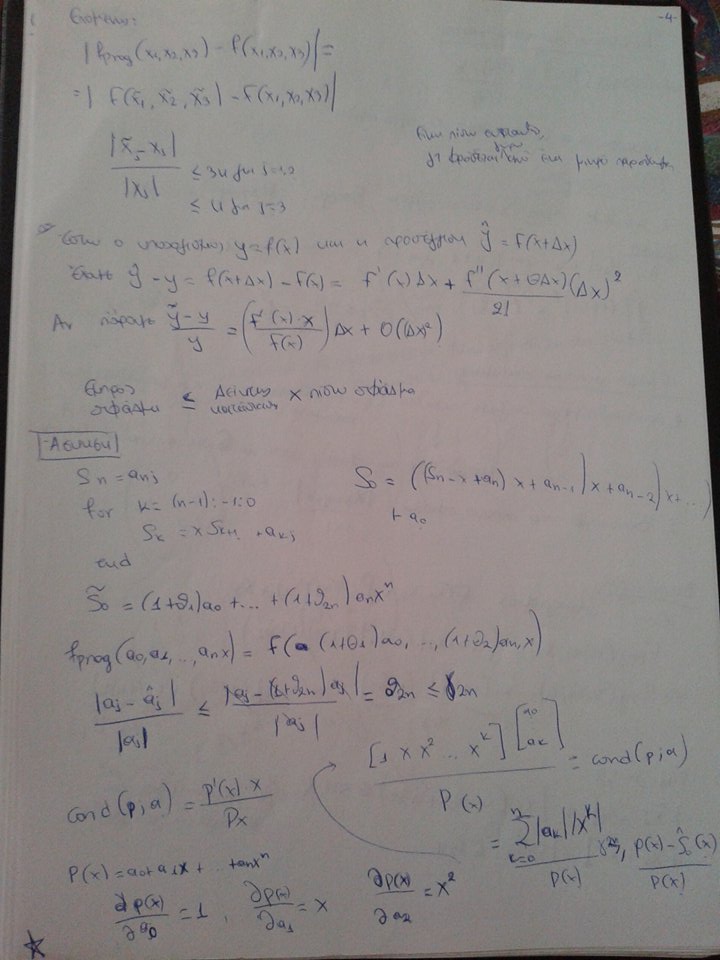 -4-
Επομένως:
|fprog(x₁,x₂,x₃) - f(x₁,x₂,x₃)| =
= | f(x̃₁, x̃₂, x̃₃) - f(x₁,x₂,x₃)|
|x̃ⱼ - xⱼ| / |xⱼ| ≤ 3u για j=1,2
≤ u για j=3
Έστω ο υπολογισμός y=f(x) και η προσέγγιση ŷ = f(x+Δx)
Έχουμε ŷ - y = f(x+Δx) - f(x) = f'(x)Δx + f''(x+θΔx)/2! (Δx)²
Αν πάρουμε (ỹ-y)/y = (f'(x)·x / f(x)) Δx + O((Δx)²)
Εμπρος σφάλμα ≤ Δείκτης κατάστασης × πίσω σφάλμα
Άσκηση
Sn = an;
for k = (n-1):-1:0
Sk = xSk+1 + ak;
end
S₀ = ((Sn-x + an) x + an-1) x + an-2) x + ...)
+ a₀
S̃₀ = (1+ϑ₁)a₀ + ... + (1+ϑ2n) anxⁿ
fprog(a₀,a₁,..,an x) = f( (1+θ₁)a₀, ..., (1+ϑ₂)an, x)
|aⱼ - âⱼ| / |aⱼ| ≤ |aⱼ - (1+ϑ2n)aⱼ| / |aⱼ| = ϑ2n ≤ γ2n
[1 x x² ... xᵏ] [a₀ aκ] / P(x) = cond(p;a)
cond(p;a) = p'(x) x / Px
= Σⁿₖ₌₀ |aκ||xᵏ| / p(x) γ2n, (p(x) - Ŝ₀(x)) / p(x)
P(x) = a₀+a₁x + ... + anxⁿ
∂p(x)/∂a₀ = 1, ∂p(x)/∂a₁ = x ∂p(x)/∂a₂ = x²